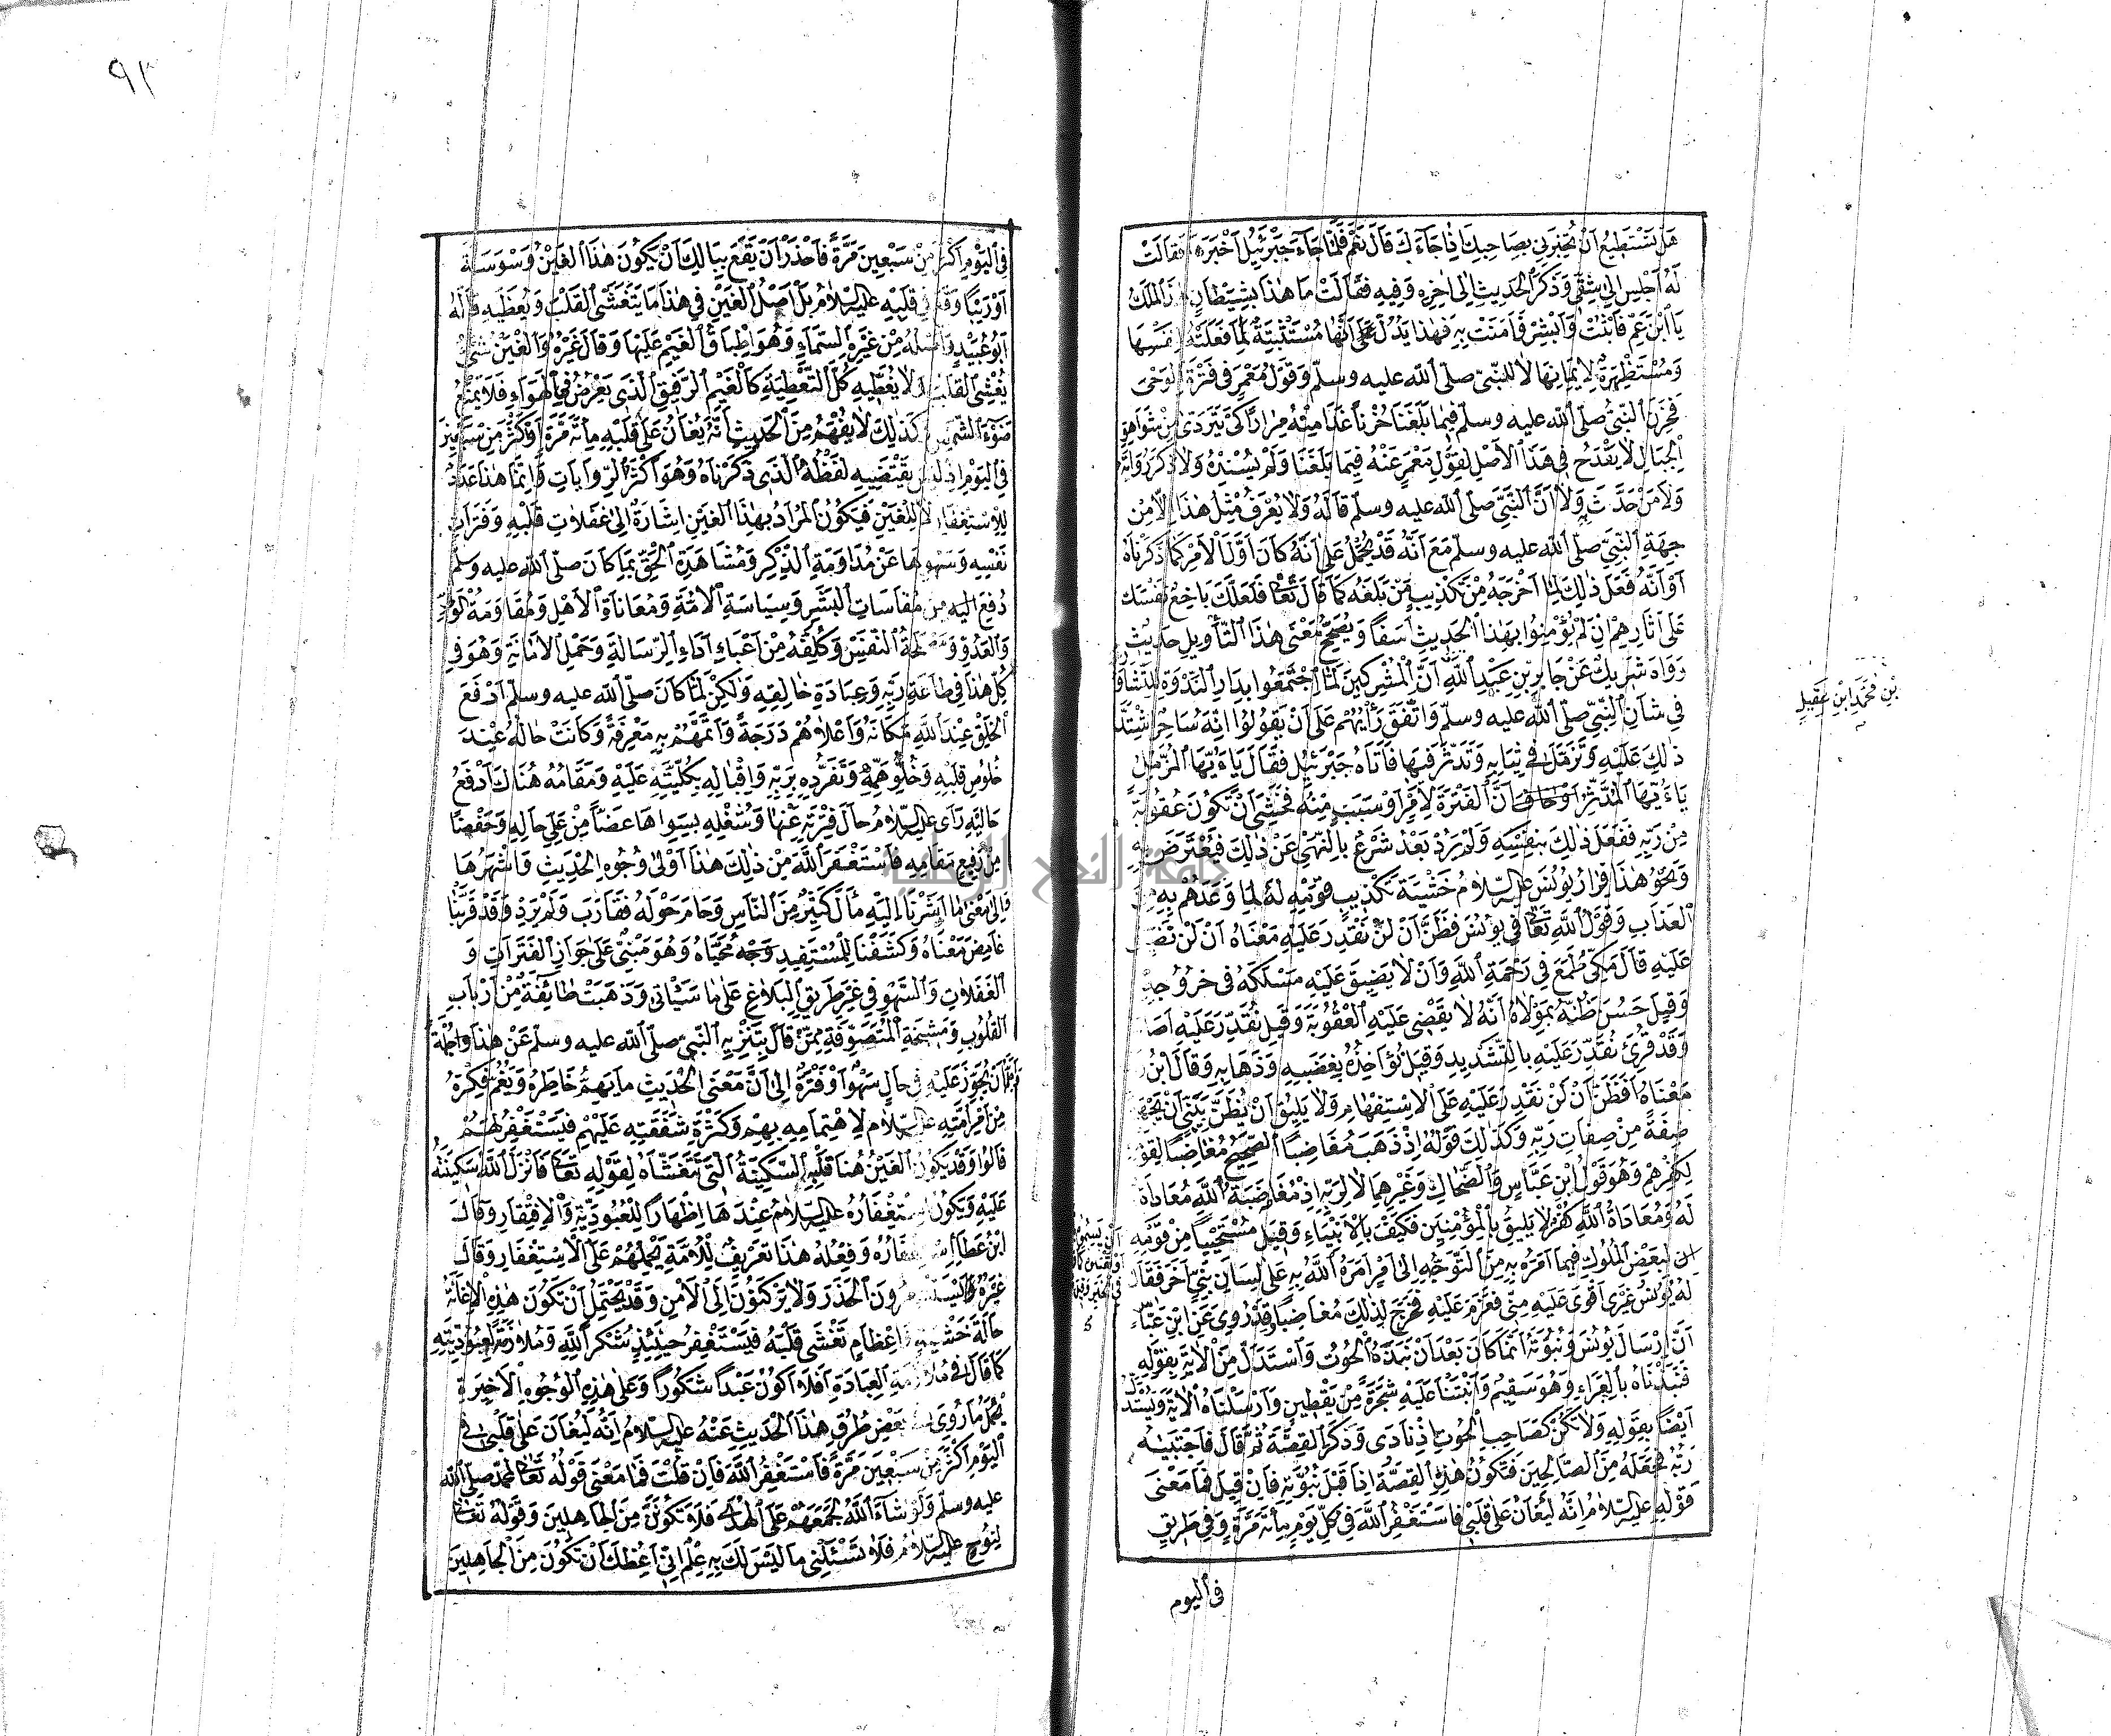 هَلْ تَسْتَطِيعُ اَنْ تُخْبِرَنِي بِصَاحِبِكَ اِذَا جَاءَكَ قَالَ نَعَمْ فَلَمَّا جَاءَ جِبْرَئِيلُ اَخْبَرَهَا فَقَالَتْ
لَهُ اجْلِسْ اِلَى شِقِّي وَذَكَرَ الْحَدِيثَ اِلَى اٰخِرِهِ وَفِيهِ فَقَالَتْ مَا هٰذَا بِشَيْطَانٍ هٰذَا الْمَلَكُ
يَا ابْنَ عَمِّ فَاثْبُتْ وَاَبْشِرْ وَاٰمَنَتْ بِهِ فَهٰذَا يَدُلُّ عَلَى اَنَّهَا مُسْتَثْبِتَةٌ لِمَا فَعَلَتْهُ لِنَفْسِهَا
وَمُسْتَظْهِرَةٌ لِاِيمَانِهَا لَا لِلنَّبِيِّ صلّى اللّه عليه وسلّم وَقَوْلُ مَعْمَرٍ فِي فَتْرَةِ الْوَحْيِ
فَحَزِنَ النَّبِيُّ صلّى اللّه عليه وسلّم فِيمَا بَلَغَنَا حُزْنًا غَدَا مِنْهُ مِرَارًا كَيْ يَتَرَدَّى مِنْ شَوَاهِقِ
الْجِبَالِ لَا يَقْدَحُ فِي هَذَا الْاَصْلِ لِقَوْلِ مَعْمَرٍ عَنْهُ فِيمَا بَلَغَنَا وَلَمْ يُسْنِدْهُ وَلَا ذَكَرَ رُوَاتَهُ
وَلَا مَنْ حَدَّثَ وَلَا اَنَّ النَّبِيَّ صلّى اللّه عليه وسلّم قَالَهُ وَلَا يُعْرَفُ مِثْلُ هٰذَا اِلَّا مِنْ
جِهَةِ النَّبِيِّ صلّى اللّه عليه وسلّم مَعَ اَنَّهُ قَدْ يُحْمَلُ عَلَى اَنَّهُ كَانَ اَوَّلَ الْاَمْرِ كَمَا ذَكَرْنَاهُ
اَوْ اَنَّهُ فَعَلَ ذٰلِكَ لِمَا اَخْرَجَهُ مِنْ تَكْذِيبِ مَنْ بَلَّغَهُ كَمَا قَالَ تَعَالَى فَلَعَلَّكَ بَاخِعٌ نَفْسَكَ
عَلَى اٰثَارِهِمْ اِنْ لَمْ يُؤْمِنُوا بِهٰذَا الْحَدِيثِ اَسَفًا وَيُصَحِّحُ مَعْنَى هٰذَا التَّأْوِيلِ حَدِيثٌ
رَوَاهُ شَرِيكٌ عَنْ جَابِرِ بْنِ عَبْدِ اللّٰهِ اَنَّ الْمُشْرِكِينَ لَمَّا اجْتَمَعُوا بِدَارِ النَّدْوَةِ لِلتَّشَاوُرِ
فِي شَاْنِ النَّبِيِّ صلّى اللّه عليه وسلّم وَاتَّفَقَ رَاْيُهُمْ عَلَى اَنْ يَقُولُوا اِنَّهُ سَاحِرٌ اشْتَدَّ
ذٰلِكَ عَلَيْهِ وَتَزَمَّلَ فِي ثِيَابِهِ وَتَدَثَّرَ فِيهَا فَاَتَاهُ جِبْرَئِيلُ فَقَالَ يَا اَيُّهَا الْمُزَّمِّلُ
يَا اَيُّهَا الْمُدَّثِّرُ اَوْ خَافَ اَنَّ الْفَتْرَةَ لِاَمْرٍ اَوْ سَبَبٍ مِنْهُ فَخَشِيَ اَنْ تَكُونَ عُقُوبَةً
مِنْ رَبِّهِ فَفَعَلَ ذٰلِكَ بِنَفْسِهِ وَلَمْ يَرِدْ بَعْدُ شَرْعٌ بِالنَّهْيِ عَنْ ذٰلِكَ فَيُعْتَرَضَ بِهِ
وَنَحْوُ هٰذَا فِرَارُ يُونُسَ عليه السّلام خَشْيَةَ تَكْذِيبِ قَوْمِهِ لَهُ لِمَا وَعَدَهُمْ بِهِ مِنَ
الْعَذَابِ وَقَوْلُ اللّٰهِ تَعَالَى فِي يُونُسَ فَظَنَّ اَنْ لَنْ نَقْدِرَ عَلَيْهِ مَعْنَاهُ اَنْ لَنْ نُضَيِّقَ
عَلَيْهِ قَالَ مَكِّيٌّ طَمِعَ فِي رَحْمَةِ اللّٰهِ وَاَنْ لَا يُضَيِّقَ عَلَيْهِ مَسْلَكَهُ فِي خُرُوجِهِ
وَقِيلَ حَسَّنَ ظَنَّهُ بِمَوْلَاهُ اَنَّهُ لَا يَقْضِي عَلَيْهِ الْعُقُوبَةَ وَقِيلَ نُقَدِّرَ عَلَيْهِ اَصَا
وَقَدْ قُرِئَ نُقَدِّرَ عَلَيْهِ بِالتَّشْدِيدِ وَقِيلَ نُؤَاخِذُهُ بِغَضَبِهِ وَذَهَابِهِ وَقَالَ ابْنُ
مَعْنَاهُ اَفَظَنَّ اَنْ لَنْ نَقْدِرَ عَلَيْهِ عَلَى الْاِسْتِفْهَامِ وَلَا يَلِيقُ اَنْ يُظَنَّ بِنَبِيٍّ اَنْ يَجْهَلَ
صِفَةً مِنْ صِفَاتِ رَبِّهِ وَكَذٰلِكَ قَوْلُهُ اِذْ ذَهَبَ مُغَاضِبًا الصَّحِيحُ مُغَاضِبًا لِقَوْمِهِ
لِكُفْرِهِمْ وَهُوَ قَوْلُ ابْنِ عَبَّاسٍ وَالضَّحَّاكِ وَغَيْرِهِمَا لَا لِرَبِّهِ اِذْ مُغَاضَبَةُ اللّٰهِ مُعَادَاةٌ
لَهُ وَمُعَادَاةُ اللّٰهِ كُفْرٌ لَا يَلِيقُ بِالْمُؤْمِنِينَ فَكَيْفَ بِالْاَنْبِيَاءِ وَقِيلَ مُسْتَحْيِيًا مِنْ قَوْمِهِ
لِبَعْضِ الْمُلُوكِ فِيمَا اَمَرَهُ بِهِ مِنَ التَّوَجُّهِ اِلَى اَمْرٍ اَمَرَهُ اللّٰهُ بِهِ عَلَى لِسَانِ نَبِيٍّ اٰخَرَ فَقَالَ
لَهُ يُونُسُ غَيْرِي اَقْوَى عَلَيْهِ مِنِّي فَعَزَمَ عَلَيْهِ فَخَرَجَ لِذٰلِكَ مُغَاضِبًا وَقَدْ رُوِيَ عَنِ ابْنِ عَبَّاسٍ
اَنَّ اِرْسَالَ يُونُسَ وَنُبُوَّتَهُ اِنَّمَا كَانَ بَعْدَ اَنْ نَبَذَهُ الْحُوتُ وَاسْتَدَلَّ مِنَ الْاٰيَةِ بِقَوْلِهِ
فَنَبَذْنَاهُ بِالْعَرَاءِ وَهُوَ سَقِيمٌ وَاَنْبَتْنَا عَلَيْهِ شَجَرَةً مِنْ يَقْطِينٍ وَاَرْسَلْنَاهُ الْاٰيَةَ وَيُسْتَدَلُّ
اَيْضًا بِقَوْلِهِ وَلَا تَكُنْ كَصَاحِبِ الْحُوتِ اِذْ نَادَى وَذَكَرَ الْقِصَّةَ ثُمَّ قَالَ فَاجْتَبَاهُ
رَبُّهُ فَجَعَلَهُ مِنَ الصَّالِحِينَ فَتَكُونُ هٰذِهِ الْقِصَّةُ اِذًا قَبْلَ نُبُوَّتِهِ فَاِنْ قِيلَ فَمَا مَعْنَى
قَوْلِهِ عليه السّلام اِنَّهُ لَيُغَانُ عَلَى قَلْبِي فَاَسْتَغْفِرُ اللّٰهَ فِي كُلِّ يَوْمٍ مِائَةَ مَرَّةٍ وَفِي طَرِيقٍ
فى اليوم
بْنِ مُحَمَّدِ ابْنِ عَقِيلٍ
٩٣
فِي الْيَوْمِ اَكْثَرَ مِنْ سَبْعِينَ مَرَّةً فَاحْذَرْ اَنْ يَقَعَ بِبَالِكَ اَنْ يَكُونَ هٰذَا الْغَيْنُ وَسْوَسَةً
اَوْ رَيْبًا وَقَعَ فِي قَلْبِهِ عليه السّلام بَلْ اَصْلُ الْغَيْنِ فِي هٰذَا مَا يَتَغَشَّى الْقَلْبَ وَيُغَطِّيهِ قَالَهُ
اَبُو عُبَيْدٍ وَاَصْلُهُ مِنْ غَيْنِ السَّمَاءِ وَهُوَ اِطْبَاقُ الْغَيْمِ عَلَيْهَا وَقَالَ غَيْرُهُ وَالْغَيْنُ شَيْءٌ
يُغَشِّي الْقَلْبَ وَلَا يُغَطِّيهِ كُلَّ التَّغْطِيَةِ كَالْغَيْمِ الرَّقِيقِ الَّذِي يَعْرِضُ فِي الْهَوَاءِ فَلَا يَمْنَعُ
ضَوْءَ الشَّمْسِ وَكَذٰلِكَ لَا يُفْهَمُ مِنَ الْحَدِيثِ اَنَّهُ يُغَانُ عَلَى قَلْبِهِ مِائَةَ مَرَّةٍ اَوْ اَكْثَرَ مِنْ سَبْعِينَ
فِي الْيَوْمِ اِذْ لَيْسَ يَقْتَضِيهِ لَفْظُهُ الَّذِي ذَكَرْنَاهُ وَهُوَ اَكْثَرُ الرِّوَايَاتِ وَاِنَّمَا هٰذَا عَدَدٌ
لِلِاسْتِغْفَارِ لَا لِلْغَيْنِ فَيَكُونُ الْمُرَادُ بِهٰذَا الْغَيْنِ اِشَارَةً اِلَى غَفَلَاتِ قَلْبِهِ وَفَتَرَاتِ
نَفْسِهِ وَسَهْوِهَا عَنْ مُدَاوَمَةِ الذِّكْرِ وَمُشَاهَدَةِ الْحَقِّ بِمَا كَانَ صلّى اللّه عليه وسلّم
دُفِعَ اِلَيْهِ مِنْ مُقَاسَاتِ الْبَشَرِ وَسِيَاسَةِ الْاُمَّةِ وَمُعَانَاةِ الْاَهْلِ وَمُقَاوَمَةِ الْوَلِيِّ
وَالْعَدُوِّ وَمَصْلَحَةِ النَّفْسِ وَكُلِّفَهُ مِنْ اَعْبَاءِ اَدَاءِ الرِّسَالَةِ وَحَمْلِ الْاَمَانَةِ وَهُوَ فِي
كُلِّ هٰذَا فِي طَاعَةِ رَبِّهِ وَعِبَادَةِ خَالِقِهِ وَلٰكِنْ لَمَّا كَانَ صلّى اللّه عليه وسلّم اَرْفَعَ
الْخَلْقِ عِنْدَ اللّٰهِ مَكَانَةً وَاَعْلَاهُمْ دَرَجَةً وَاَتَمَّهُمْ بِهِ مَعْرِفَةً وَكَانَتْ حَالُهُ عِنْدَ
خُلُوصِ قَلْبِهِ وَخُلُوِّ هَمِّهِ وَتَفَرُّدِهِ بِرَبِّهِ وَاِقْبَالِهِ بِكُلِّيَّتِهِ عَلَيْهِ وَمَقَامُهُ هُنَاكَ اَرْفَعُ
حَالَيْهِ رَاَى عليه السّلام حَالَ فَتْرَتِهِ عَنْهَا وَشُغْلِهِ بِسِوَاهَا غَضًّا مِنْ عَلِيِّ حَالِهِ وَخَفْضًا
مِنْ رَفِيعِ مَقَامِهِ فَاسْتَغْفَرَ اللّٰهَ مِنْ ذٰلِكَ هٰذَا اَوْلَى وُجُوهِ الْحَدِيثِ وَاَشْهَرُهَا
وَاِلَى مَعْنَى مَا اَشَرْنَا اِلَيْهِ مَالَ كَثِيرٌ مِنَ النَّاسِ وَحَامَ حَوْلَهُ فَقَارَبَ وَلَمْ يَرِدْ وَقَدْ قَرَّبْنَا
غَامِضَ مَعْنَاهُ وَكَشَفْنَا لِلْمُسْتَفِيدِ وَجْهَ مُحَيَّاهُ وَهُوَ مَبْنِيٌّ عَلَى جَوَازِ الْفَتَرَاتِ وَ
الْغَفَلَاتِ وَالسَّهْوِ فِي غَيْرِ طَرِيقِ الْبَلَاغِ عَلَى مَا سَيَاْتِي وَذَهَبَتْ طَائِفَةٌ مِنْ اَرْبَابِ
الْقُلُوبِ وَمَشْيَخَةِ الْمُتَصَوِّفَةِ مِمَّنْ قَالَ بِتَنْزِيهِ النَّبِيِّ صلّى اللّه عليه وسلّم عَنْ هٰذَا جُمْلَةً
اَنْ يَجُوزَ عَلَيْهِ فِي حَالٍ سَهْوٌ اَوْ فَتْرَةٌ اِلَى اَنَّ مَعْنَى الْحَدِيثِ مَا يُهِمُّ خَاطِرَهُ وَيَغُمُّ فِكْرَهُ
مِنْ اَمْرِ اُمَّتِهِ عليه السّلام لِاهْتِمَامِهِ بِهِمْ وَكَثْرَةِ شَفَقَتِهِ عَلَيْهِمْ فَيَسْتَغْفِرُ لَهُمْ
قَالُوا وَقَدْ يَكُونُ الْغَيْنُ هُنَا قَلْبِهِ السَّكِينَةُ الَّتِي تَتَغَشَّاهُ لِقَوْلِهِ تَعَالَى فَاَنْزَلَ اللّٰهُ سَكِينَتَهُ
عَلَيْهِ وَيَكُونُ اسْتِغْفَارُهُ عليه السّلام عِنْدَهَا اِظْهَارًا لِلْعُبُودِيَّةِ وَالْاِفْتِقَارِ وَقَالَ
ابْنُ عَطَاءٍ اسْتِغْفَارُهُ وَفِعْلُهُ هٰذَا تَعْرِيفٌ لِلْاُمَّةِ يَحْمِلُهُمْ عَلَى الْاِسْتِغْفَارِ وَقَالَ
غَيْرُهُ وَيَسْتَشْعِرُونَ الْحَذَرَ وَلَا يَرْكَنُونَ اِلَى الْاَمْنِ وَقَدْ يَحْتَمِلُ اَنْ تَكُونَ هٰذِهِ الْاِغَانَةُ
حَالَةَ خَشْيَةٍ وَاِعْظَامٍ تَغْشَى قَلْبَهُ فَيَسْتَغْفِرُ حِينَئِذٍ شُكْرًا لِلّٰهِ وَمُلَازَمَةً لِعُبُودِيَّتِهِ
كَمَا قَالَ فِي مُلَازَمَةِ الْعِبَادَةِ اَفَلَا اَكُونُ عَبْدًا شَكُورًا وَعَلَى هٰذِهِ الْوُجُوهِ الْاَخِيرَةِ
يُحْمَلُ مَا رُوِيَ فِي بَعْضِ طُرُقِ هٰذَا الْحَدِيثِ عَنْهُ عليه السّلام اِنَّهُ لَيُغَانُ عَلَى قَلْبِي فِي
الْيَوْمِ اَكْثَرَ مِنْ سَبْعِينَ مَرَّةً فَاَسْتَغْفِرُ اللّٰهَ فَاِنْ قُلْتَ فَمَا مَعْنَى قَوْلِهِ تَعَالَى لِمُحَمَّدٍ صلّى اللّه
عليه وسلّم وَلَوْ شَاءَ اللّٰهُ لَجَمَعَهُمْ عَلَى الْهُدَى فَلَا تَكُونَنَّ مِنَ الْجَاهِلِينَ وَقَوْلِهِ تَعَالَى
لِنُوحٍ عليه السّلام فَلَا تَسْئَلْنِي مَا لَيْسَ لَكَ بِهِ عِلْمٌ اِنِّي اَعِظُكَ اَنْ تَكُونَ مِنَ الْجَاهِلِينَ